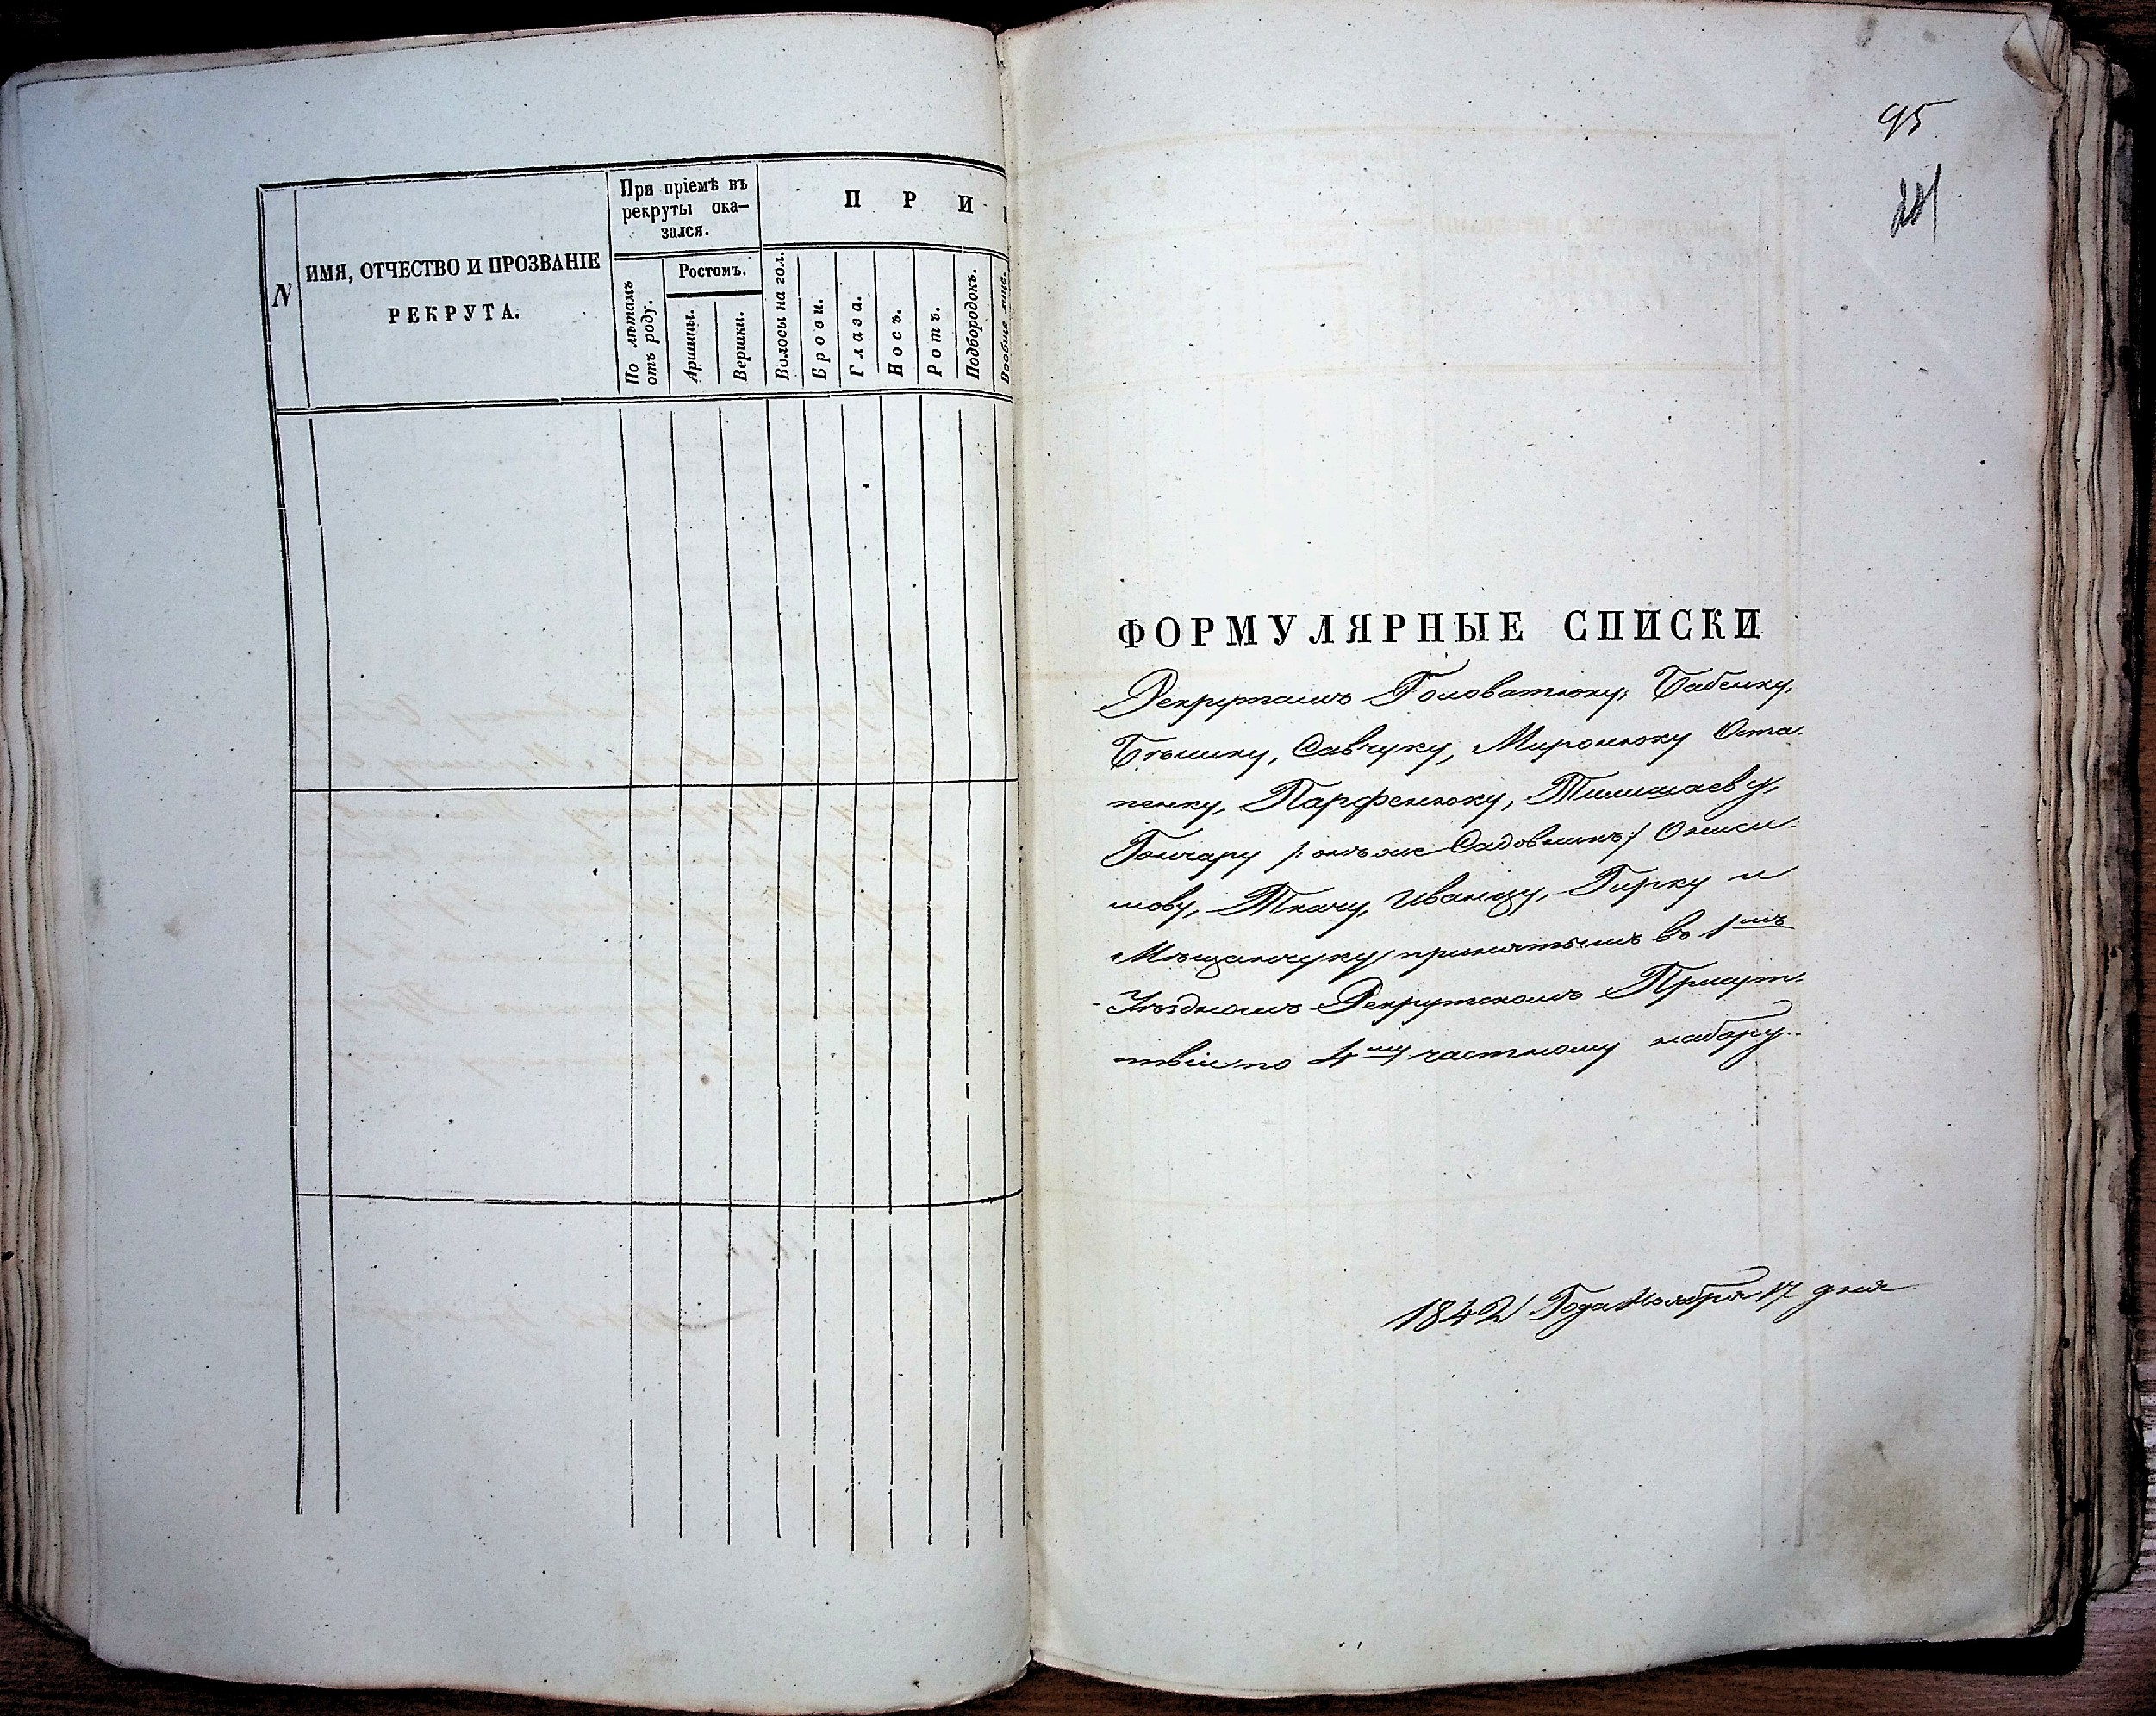 N
ИМЯ, ОТЧЕСТВО И ПРОЗВАНІЕ
РЕКРУТА.
При пріемѣ въ
рекруты ока-
зался.
По лѣтамъ
отъ роду.
Ростомъ.
Аршины.
Вершки.
П Р И
Волосы на гол.
Брови.
Глаза.
Носъ.
Ротъ.
Подбородокъ.
Вообще лице.
95
ФОРМУЛЯРНЫЕ СПИСКИ
Рекрутамъ Головатюку, Бабенку,
Бѣлику, Савчуку, Миронюку Оста-
пенку, Парфенюку, Тимишаеву,
Гончару /: онъ же Садовникъ:/ Ониси-
мову, Ткачу, Иванцу, Гирку и
Мѣщанчуку принятымъ въ 1мъ
Уѣздномъ Рекрутскомъ Присут-
твіи по 4му частному набору..
1842 Года Ноября 17 дня